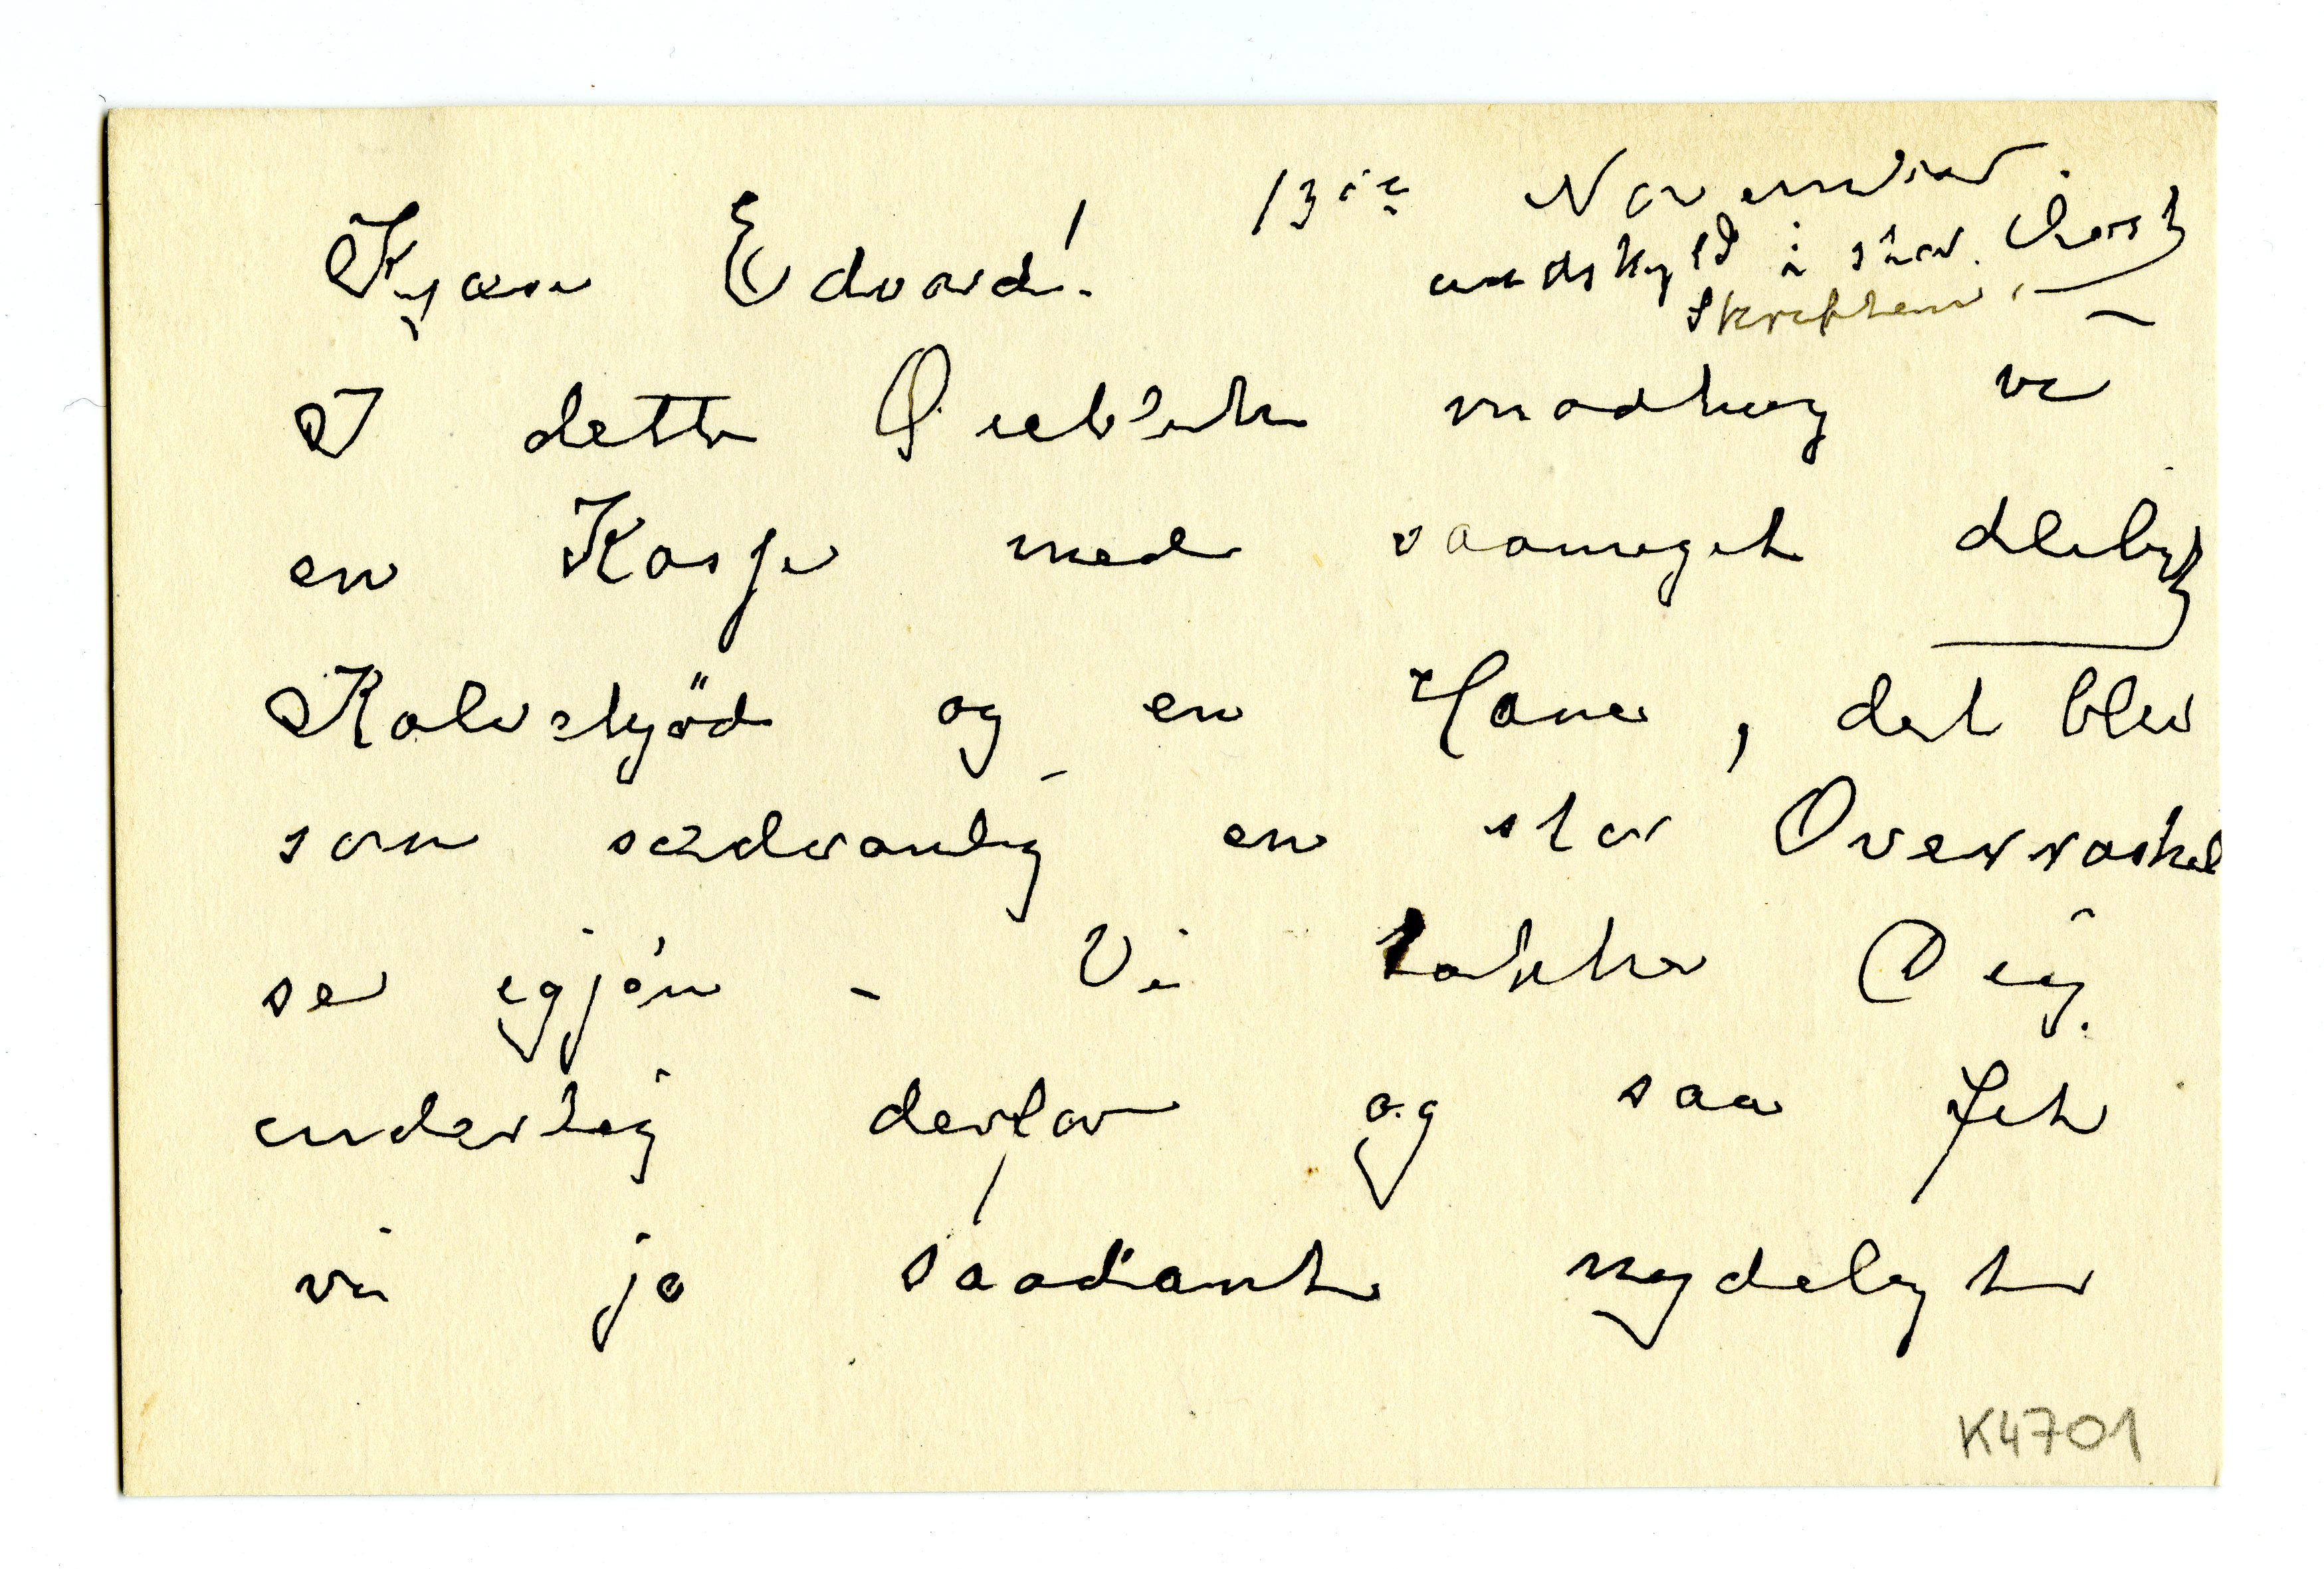 13de November.
Kjære Edvard!
undskyld i stor Hast
Skriften,
I dette Øieblik modtog vi
en Kasse med saameget deilig
Kalvekjöd og en Hane, det blev
som sædvanlig en stor Overraskel
se igjén - Vi takke Dig.
inderlig derfor og saa fik
vi jo saadant nydeligt
K4701